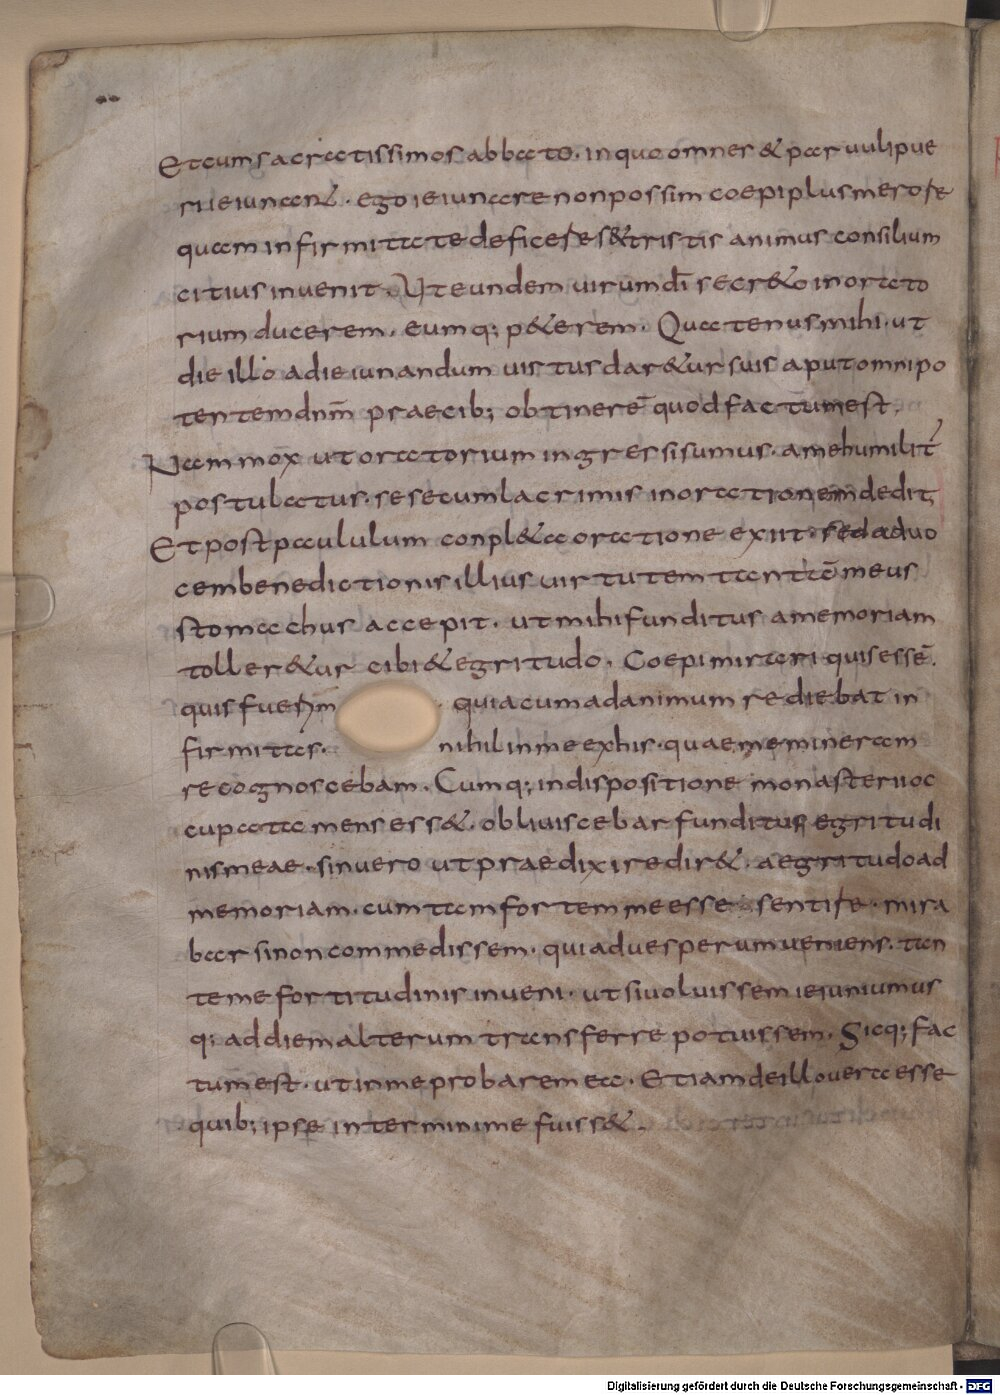 Et cum sacratissimo sabbato · in quo omnes & paruuli pue
ri ieiunan& · ego ieiunare non possim coepi plus merore
quam infirmitate deficere s& tristis animus consilium
citius invenit · Ut eundem uirum dī secr&o in orato
rium ducerem · eumq; p&erem · Quatenus mihi · ut
die illo ad ieiunandum uirtus dar&ur suis aput omnipo
tentem dnm̄ praecib; obtinere quod factum est ·
Nam mox ut oratorium ingressi sumus · a me humilit̄
postulatus · sese cum lacrimis in orationem dedit,
Et post paululum conpl&a oratione exiit · sed ad uo
cem benedictionis illius uirtutem tantā meus
stomachus accepit · ut mihi funditus a memoriam
toller&ur cibi & egritudo · Coepi mirari quis essē ·
quis fuerim · quia cum ad animum rediebat in
firmitas · nihil in me ex his · quae memineram
recognoscebam · Cumq; in dispositione monasterii oc
cupata mens ess& · obliuiscebar funditus egritudi
nis meae · sin uero ut praedixi redir& · aegritudo ad
memoriam · cum tam fortem me esse sentire · mira
bar si non commedissem · qui ad uesperum ueniens · tan
te me fortitudinis inveni · ut si uoluissem ieiunium us
q; ad diem alterum transferre potuissem · Sicq; fac
tum est · ut in me probarem ea · Etiam de illo uera esse
quib; ipse inter minime fuiss& ·
Digitalisierung gefördert durch die Deutsche Forschungsgemeinschaft - DFG